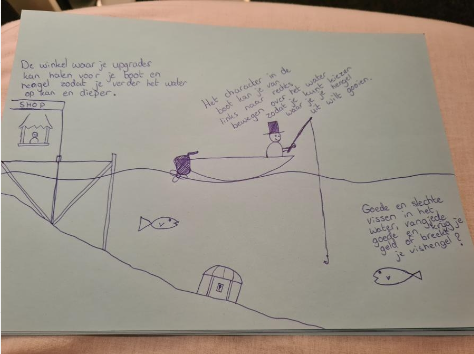 De winkel waar je upgrades
kan halen voor je boot en
hengel zodat je verder het water
op kan en dieper.
SHOP
Het character in de
boot kan je van
links naar rechts
bewegen over het water
zodat je kunt kiezen
waar je je hengel
uit wilt gooien.
Goede en slechte
vissen in het
water, vang je de
goede en krijg je
geld of breekt
je vishengel?